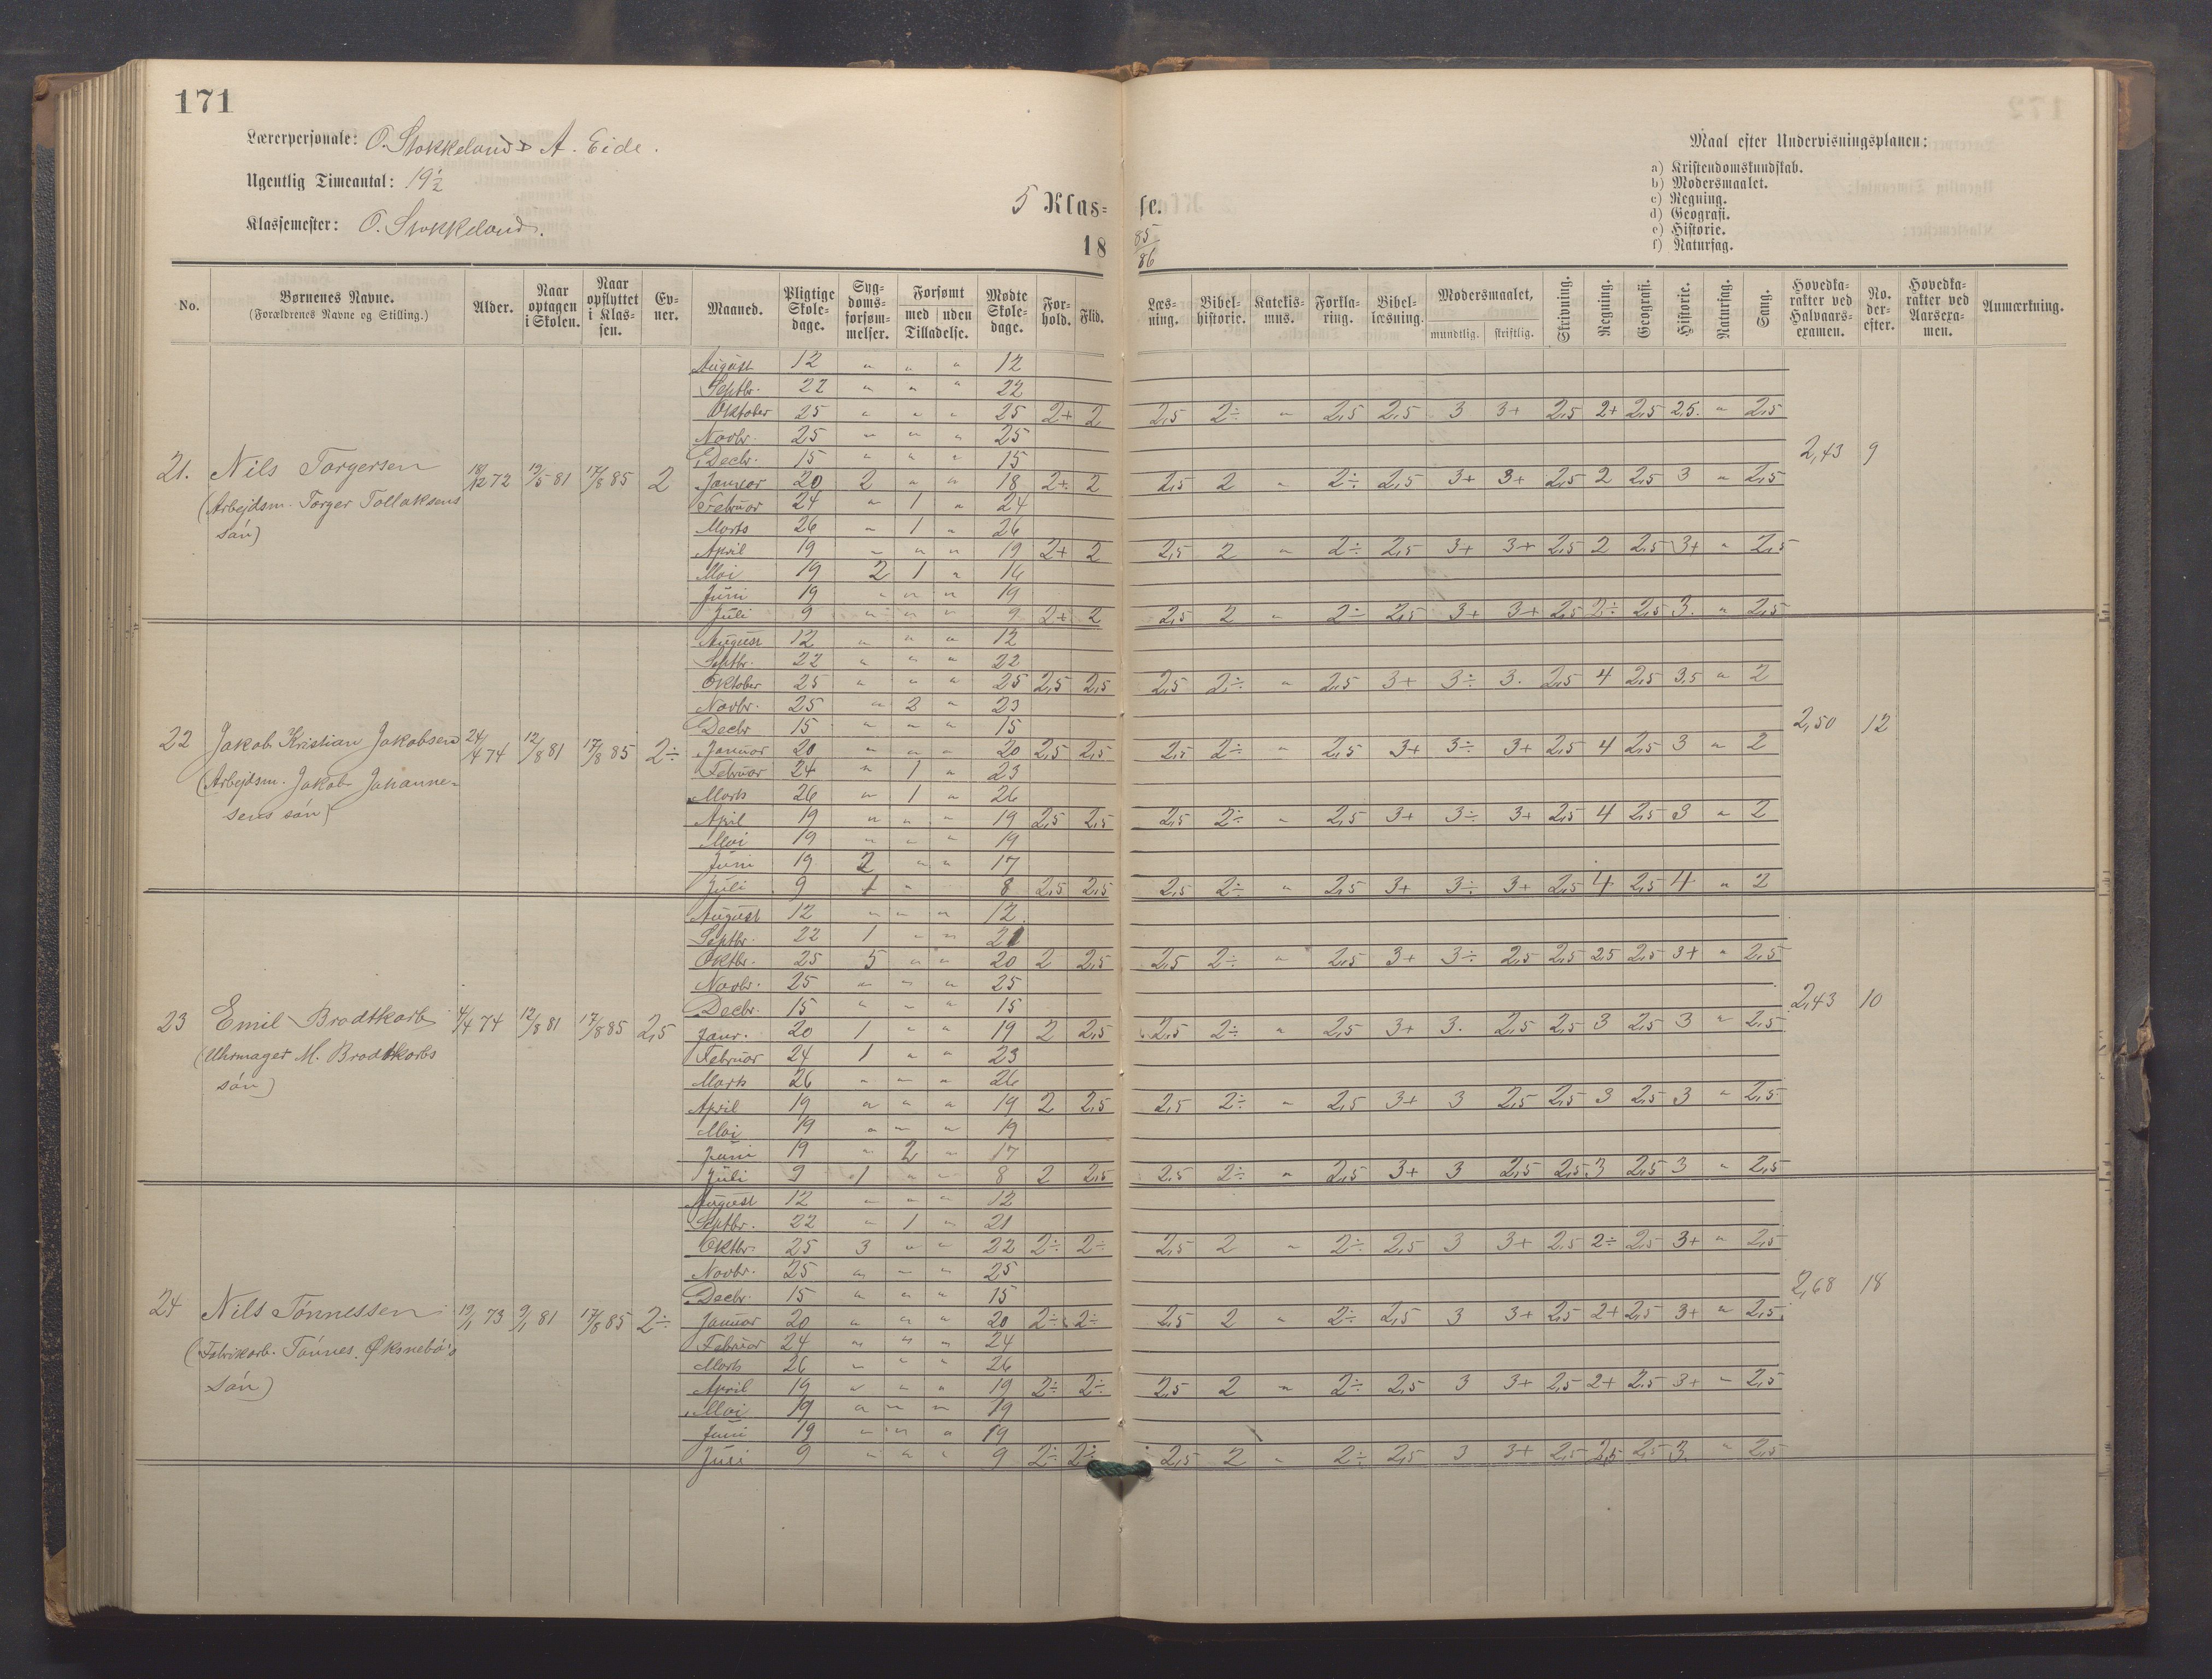 171
Lærerpersonale: O. Stokkeland & A. Eide.
Ugentlig Timeantal: 19 1/2
Klassemester: O. Stokkeland.
5 Klas= se.
18 85/86
Maal efter Undervisningsplanen:
a) Kristendomskundskab.
b) Modersmaalet.
c) Regning.
d) Geografi.
e) Historie.
f) Naturfag.
No. | Børnenes Navne. (Forældrenes Navne og Stilling.) | Alder. | Naar optagen i Skolen. | Naar opflyttet i Klas=sen. | Ev=ner. | Maaned. | Pligtige Skole=dage. | Syg=doms=forsøm=melser. | Forsømt med uden Tilladelse. | Mødte Skole=dage. | For=hold. | Flid. | Læs=ning. | Bibel=historie. | Katekis=mus. | Forkla=ring. | Bibel=læsning. | Modersmaalet, mundtlig. skriftlig. | Skrivning. | Regning. | Geografi. | Historie. | Naturfag. | Sang. | Hovedka=rakter ved Halvaars=examen. | No. der=efter. | Hovedka=rakter ved Aarsexa=men. | Anmærkning.
August 12 " " " 12
Septbr. 22 " " " 22
Oktober 25 " " " 25 2+ 2 2,5 2÷ " 2,5 2,5 3 3+ 2,5 2+ 2,5 2,5. " 2,5
Novbr. 25 " " " 25
Decbr. 15 " " " 15
21. Nils Torgersen 18/12 72 19/5 81 17/8 85 2 2,43 9
Januar 20 2 " " 18 2+ 2 2,5 2 " 2÷ 2,5 3+ 3+ 2,5 2 2,5 3 " 2,5
(Arbejdsm. Torger Tollaksens
Februar 24 " 1 " 24
søn)
Marts 26 " 1 " 26
April 19 " " " 19 2+ 2 2,5 2 " 2÷ 2,5 3+ 3+ 2,5 2 2,5 3+ " 2,5
Mai 19 2 1 " 16
Juni 19 " " " 19
Juli 9 " " " 9 2+ 2 2,5 2 " 2÷ 2,5 3+ 3+ 2,5 2÷ 2,5 3. " 2,5
August 12 " " " 12
Septbr. 22 " " " 22
Oktober 25 " " " 25 2,5 2,5 2,5 2÷ " 2,5 3+ 3÷ 3. 2,5 4 2,5 3,5 " 2
Novbr. 25 " 2 " 23
Decbr 15 " " " 15
22 Jakob Kristian Jakobsen 24/4 74 12/8 81 17/8 85 2÷ 2,50 12
Januar 20 " " " 20 2,5 2,5 2,5 2÷ " 2,5 3+ 3÷ 3+ 2,5 4 2,5 3 " 2
(Arbejdsm. Jakob Johanne=
Februar 24 " 1 " 23
Marts 26 " 1 " 26
sens søn)
April 19 " " " 19 2,5 2,5 2,5 2÷ " 2,5 3+ 3÷ 3+ 2,5 4 2,5 3 " 2
Mai 19 " " " 19
Juni 19 2 " " 17
Juli 9 1 " 8 2,5 2,5 2,5 2÷ " 2,5 3+ 3÷ 3+ 2,5 4 2,5 4 " 2
August 12 " " " 12.
Septbr. 22 1 " " 21
Oktbr. 25 5 " " 20 2 2,5 2,5 2÷ " 2,5 3+ 3÷ 2,5 2,5 2,5 2,5 3+ " 2,5
Novbr. 25 " " " 25
Decbr. 15 " " " 15
23 Emil Brodtkorb 4/4 74 12/8 81 17/8 85 2,5 2,43 10
Janr. 20 1 " " 19 2 2,5 2,5 2÷ " 2,5 3+ 3. 2,5 2,5 3 2,5 3 " 2,5
(Uhrmager M. Brodtkorbs
Februar 24 1 " " 23
søn)
Marts 26 " " " 26
April 19 " " " 19 2 2,5 2,5 2÷ " 2,5 3+ 3 2,5 2,5 3 2,5 3 " 2,5
Mai 19 " " " 19
Juni 19 " 2 " 17
Juli 9 1 " " 8 2 2,5 2,5 2÷ " 2,5 3+ 3 2,5 2,5 3 2,5 3 " 2,5
August 12 " " " 12
Septbr. 22 " 1 " 21
Oktbr. 25 3 " " 22 2÷ 2÷ 2,5 2 " 2÷ 2,5 3 3+ 2,5 2÷ 2,5 3+ " 2,5
Novbr. 25 " " " 25
Decbr. 15 " " " 15
24 Nils Tønnessen 19/1 73 9/1 81 17/8 85 2÷ 2,68 18
Januar 20 " " " 20 2÷ 2÷ 2,5 2 " 2÷ 2,5 3 3+ 2,5 2+ 2,5 3+ " 2,5
(Fabrikarb. Tønnes Øksnebø's
Februar 24 " " " 24
Marts 26 " " " 26
søn)
April 19 " " " 19 2÷ 2÷ 2,5 2 " 2÷ 2,5 3 3+ 2,5 2+ 2,5 3+ " 2,5
Mai 19 " " " 19
Juni 19 " " " 19
Juli 9 " " " 9 2÷ 2÷ 2,5 2 " 2÷ 2,5 3 3+ 2,5 2,5 2,5 3. " 2,5